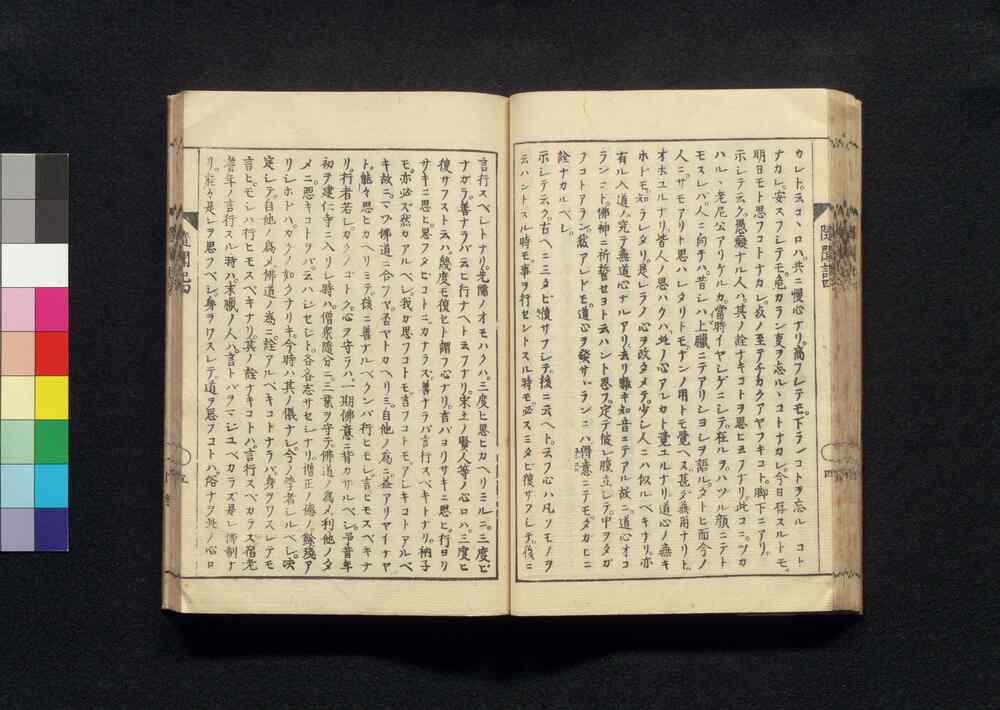 カレト云コヽロハ共ニ慢心ナリ。高フシテモ。下ランコトヲ忘ルヽコト
ナカレ。安スフシテモ。危カラン変ヲ忘ルヽコトナカレ。今日存スルトモ。
明日モト思フコトナカレ。死ノ至テチカクアヤフキコト。脚下ニアリ。
示シテ云ク。愚癡ナル人ハ。其ノ詮ナキコトヲ思ヒ云フナリ。此コニツカ
ハルヽ老尼公アリケルカ。當時イヤシゲニシテ在ルヲ。ハヅル顔ニテトモ
モスレバ。人ニ向テハ。昔シハ上臈ニテアリシヨシヲ語ル。タトヒ而今ノ
人ニ。サモアリト思ハレタリトモ。ナンノ用トモ覺ヘズ。甚ダ無用ナリト。
オホユルナリ。皆人ノ思ハクハ。此ノ心アルカト覺ユルナリ。道心ノ無キ
ホトモ。知ラレタリ。是レラノ心ヲ改タメテ。少シ人ニハ似ルベキナリ。亦
有ル入道ノ究テ無道心ナルアリ。去リ難キ知音ニテアル故ニ。道心オコ
ランコト。佛神ニ祈誓セヨト云ハント思フ。定テ彼レ腹立シテ。中ヲタガ
フコトアラン。然アレドモ。道心ヲ發サヾランニハ。得意ニテモ。タカヒニ
詮ナカルベシ。
示シテ云ク。古ヘニ三タビ復サフシテ。後ニ云ヘト。云フ心ハ。凡ソモノヲ
云ハントスル時モ。事ヲ行セントスル時モ。必スミタビ復サフシテ。後ニ
言行スベシトナリ。先儒ノオモハクハ。三度ヒ思ヒカヘリミルニ。三度ビ
ナガラ。善ナラバ云ヒ行ナヘト云フナリ。宋土ノ賢人等ノ心ロハ。三度ヒ
復サフスト云ハ。幾度モ復セト謂フ心ナリ。言バヨリサキニ思ヒ。行ヨリ
サキニ思ヒ。思フタビコトニ。カナラス善ナラバ言行スベキトナリ。衲子
モ亦必ズ然カアルベシ。我ガ思フコトモ。言フコトモ。アシキコトアルベ
キ故ニ。マヅ佛道ニ合フヤ否ヤトカヘリミ。自他ノ為ニ益アリヤイナヤ
ト。能々思ヒカヘリミテ。後ニ善ナルベクンバ。行ヒモシ。言ヒモスベキナ
リ。行者若シ。カクノコトク。心ヲ守ラハ。一期佛意ニ背カサルベシ。予昔年
初ヲ建仁寺ニ入リシ時ハ。僧衆隨分ニ三業ヲ守テ。佛道ノ為メ利他ノタ
メニ。悪キコトヲバ云ハジセジト。各各志サセシナリ。僧正ノ徳ノ餘殘ア
リシホトハ。カクノ如クナリキ。今時ハ其ノ儀ナシ。今ノ學者シルベシ。决
定シテ自他ノ為メ佛道ノ為ニ。詮アルベキコトナラバ。身ヲワスレテモ
言ヒモシハ行ヒモスベキナリ。其ノ詮ナキコトハ。言行スベカラス。宿老
耆年ノ言行スル時ハ。末臈ノ人ハ。言トバヲマジユベカラズ。是レ佛制ナ
リ。能々是レヲ思フベシ。身ヲワスレテ道ヲ思フコトハ。俗ナヲ此ノ心ロ
隨聞記四